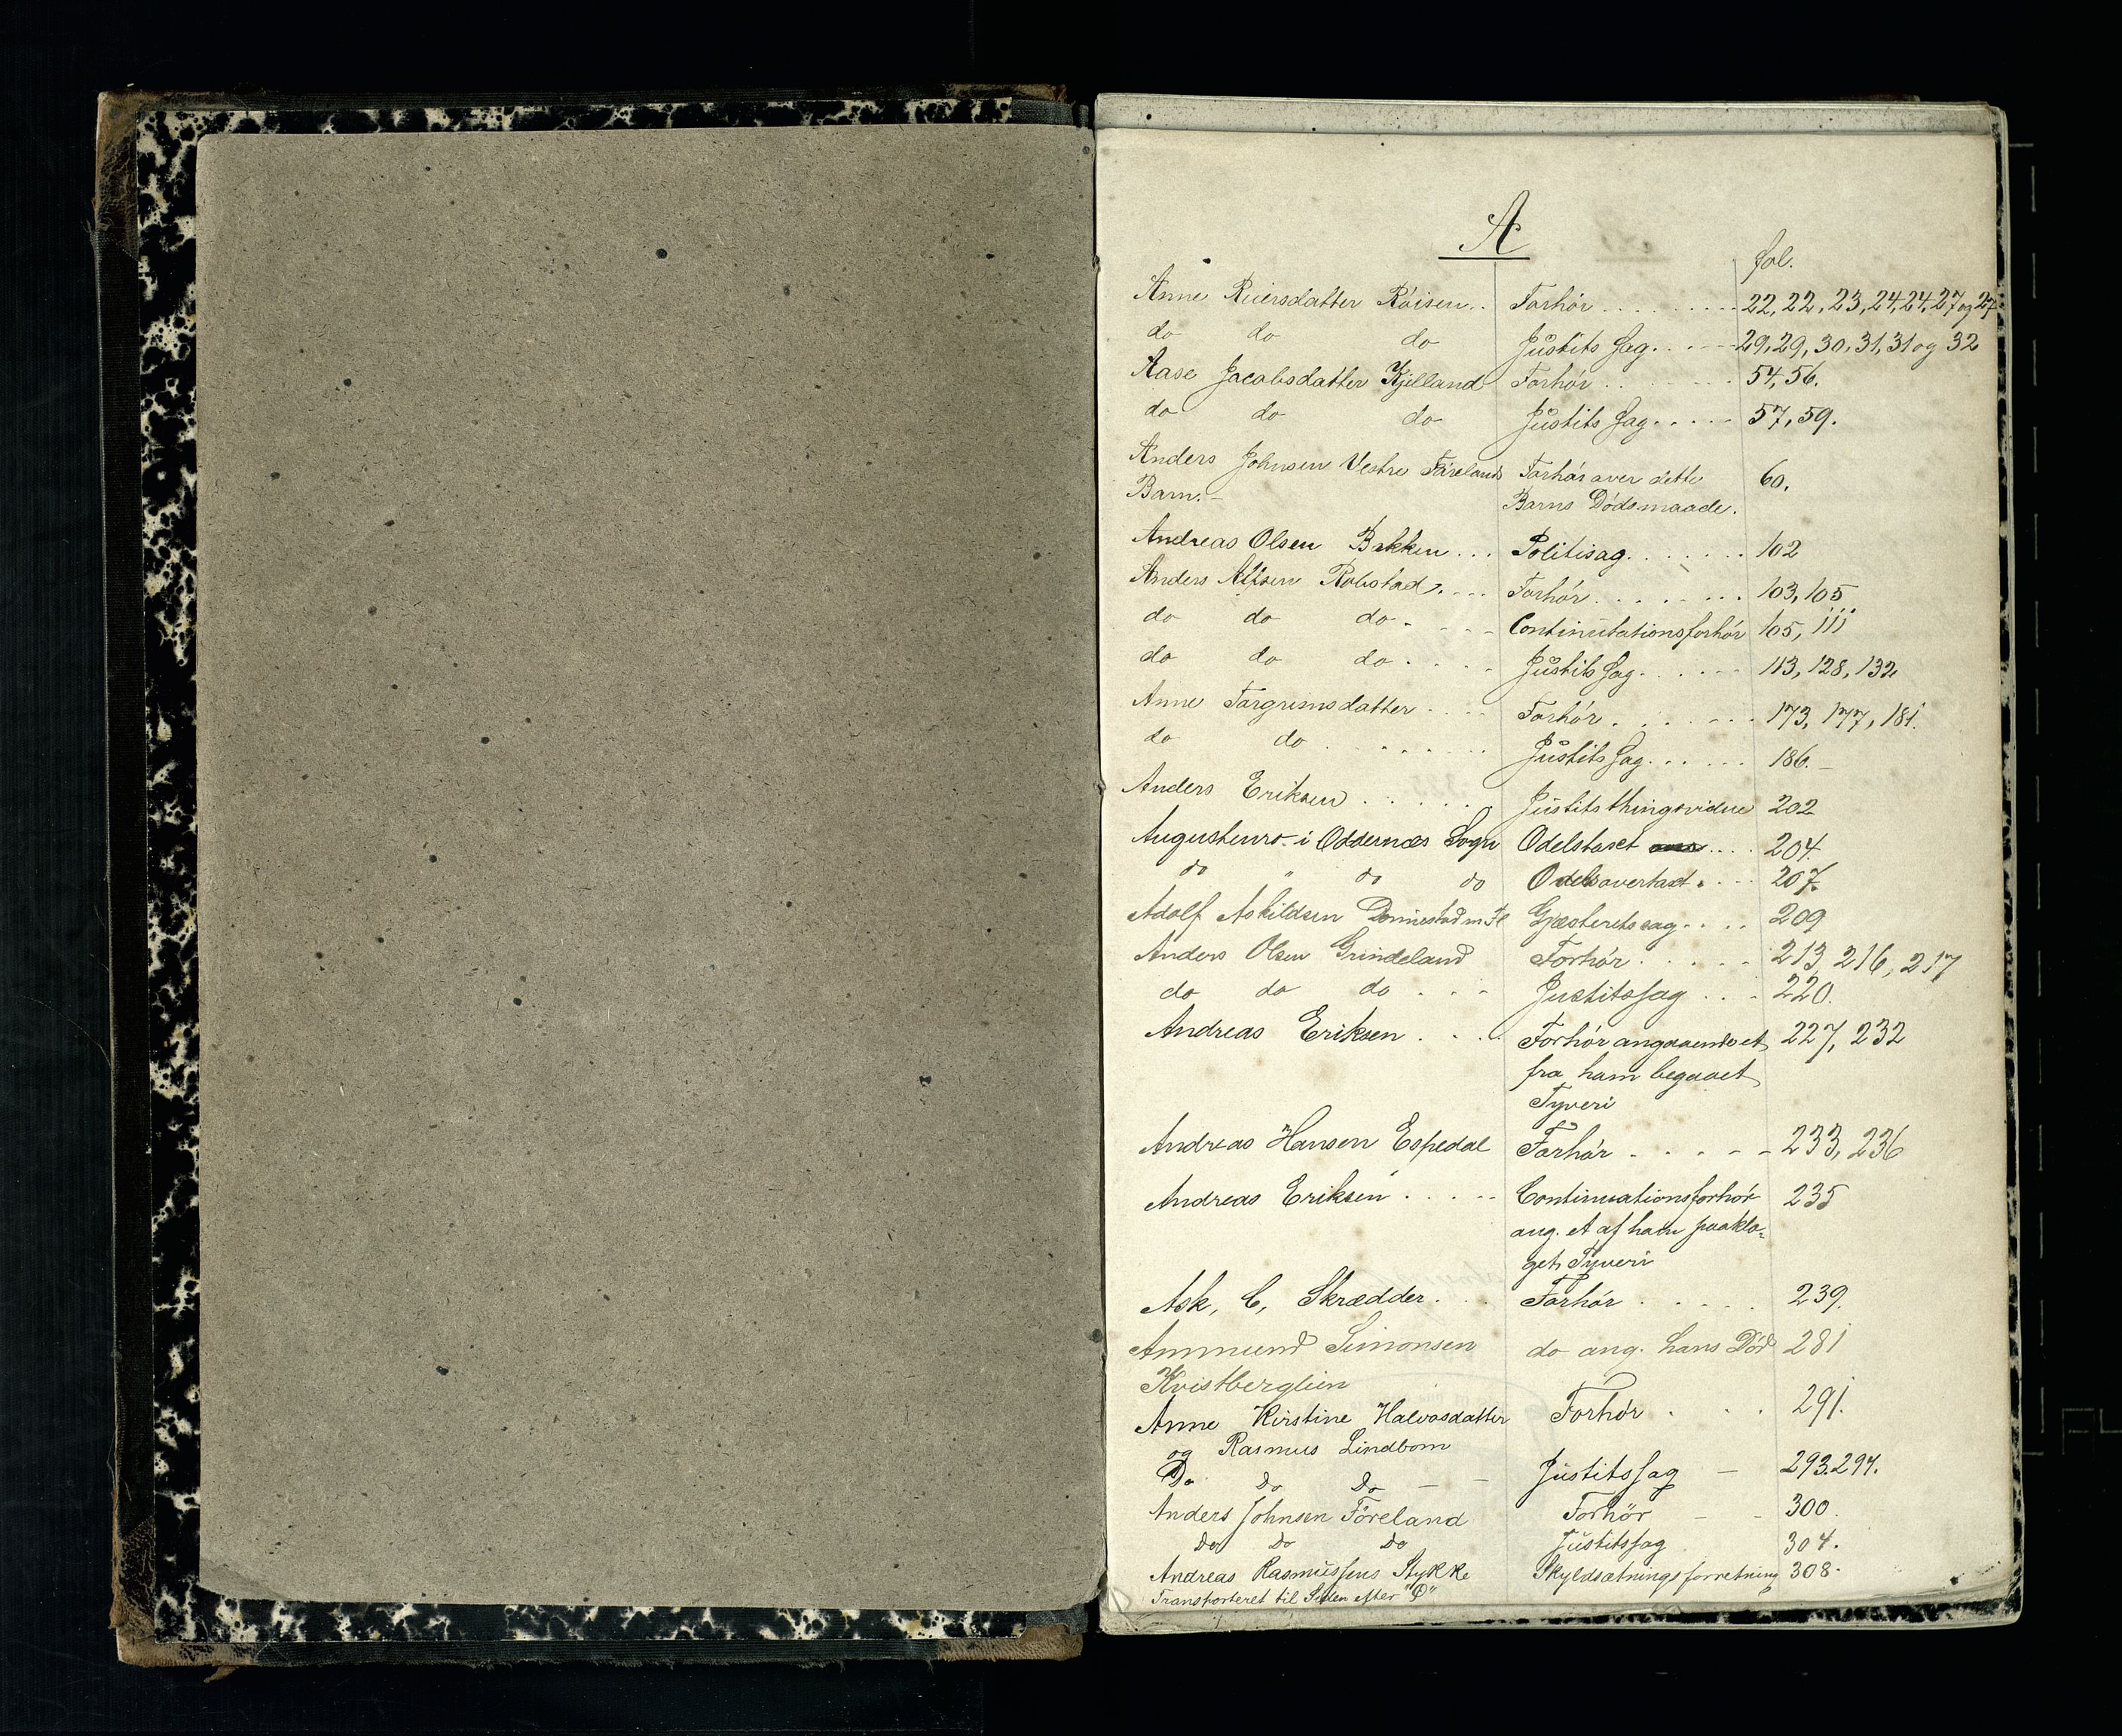 A
fol.
Anne Reiersdatter Róisen.. Forhór . . . . . . . . . 22, 22, 23, 24, 24, 27 og 27
do do do Justits Sag. . . . 29, 29, 30, 31, 31 og 32
Aase Jacobsdatter Kjelland Forhór . . . . . . . 54, 56.
do do do Justits Sag. . . . . 57, 59.
Anders Johnsen Vestre Fårelands Forhór over dette 60.
Barn. – Barns Dódsmaade.
Andreas Olsen Bakken . . . Politisag. . . . . . . 102
Anders Robstad. . . . Forhór. . . . . . . . 103, 105
do do do . . . Continutationsforhór 105, 111
do do do . . . . Justits Sag. . . . . . 113, 128, 132
Anne Torgrimsdatter . . . . Forhór. . . . . . . 173, 177, 181.
do do . . . . . . . Justits Sag. . . . . . 186. –
Anders Eriksen . . . . . . Justitsthingsvidne 202
Augustenro i Oddernæs Sogn Odelstaxt . . . . 204.
do " do do Odelsovertaxt . . . . 207.
Adolf Askildsen m Fl Gjæsteretssag. . . . 209
Anders Olsen Grindeland Forhór . . . . . 213, 216, 217
do do do . . . . Justitssag . . . 220.
Andreas Eriksen . . . . Forhór angaaende et 227, 232
fra ham begaaet
Tyveri
Andreas Hansen Espedal Forhór . . . . . 233, 236
Andreas Eriksen . . . . . Continuationsforhór 235
ang. et af ham paakla-
get Tyveri
Ask, C, Skrædder. . . Forhór . . . . . 239.
Ammund Simonsen do ang. hans Dód 281
Kvistberglien
Anne Kirstine Halvosdatter Forhór . . . 291.
og Rasmus Lindbom
Do Do Do – – Justitssag – 293. 294.
Anders Johnsen Föreland Forhör – – 300.
Do Do Do Justitssag 304.
Andreas Rasmussens Stykke Skyldsætningsforretning 308.
Transporteret til Siden efter "Ø"